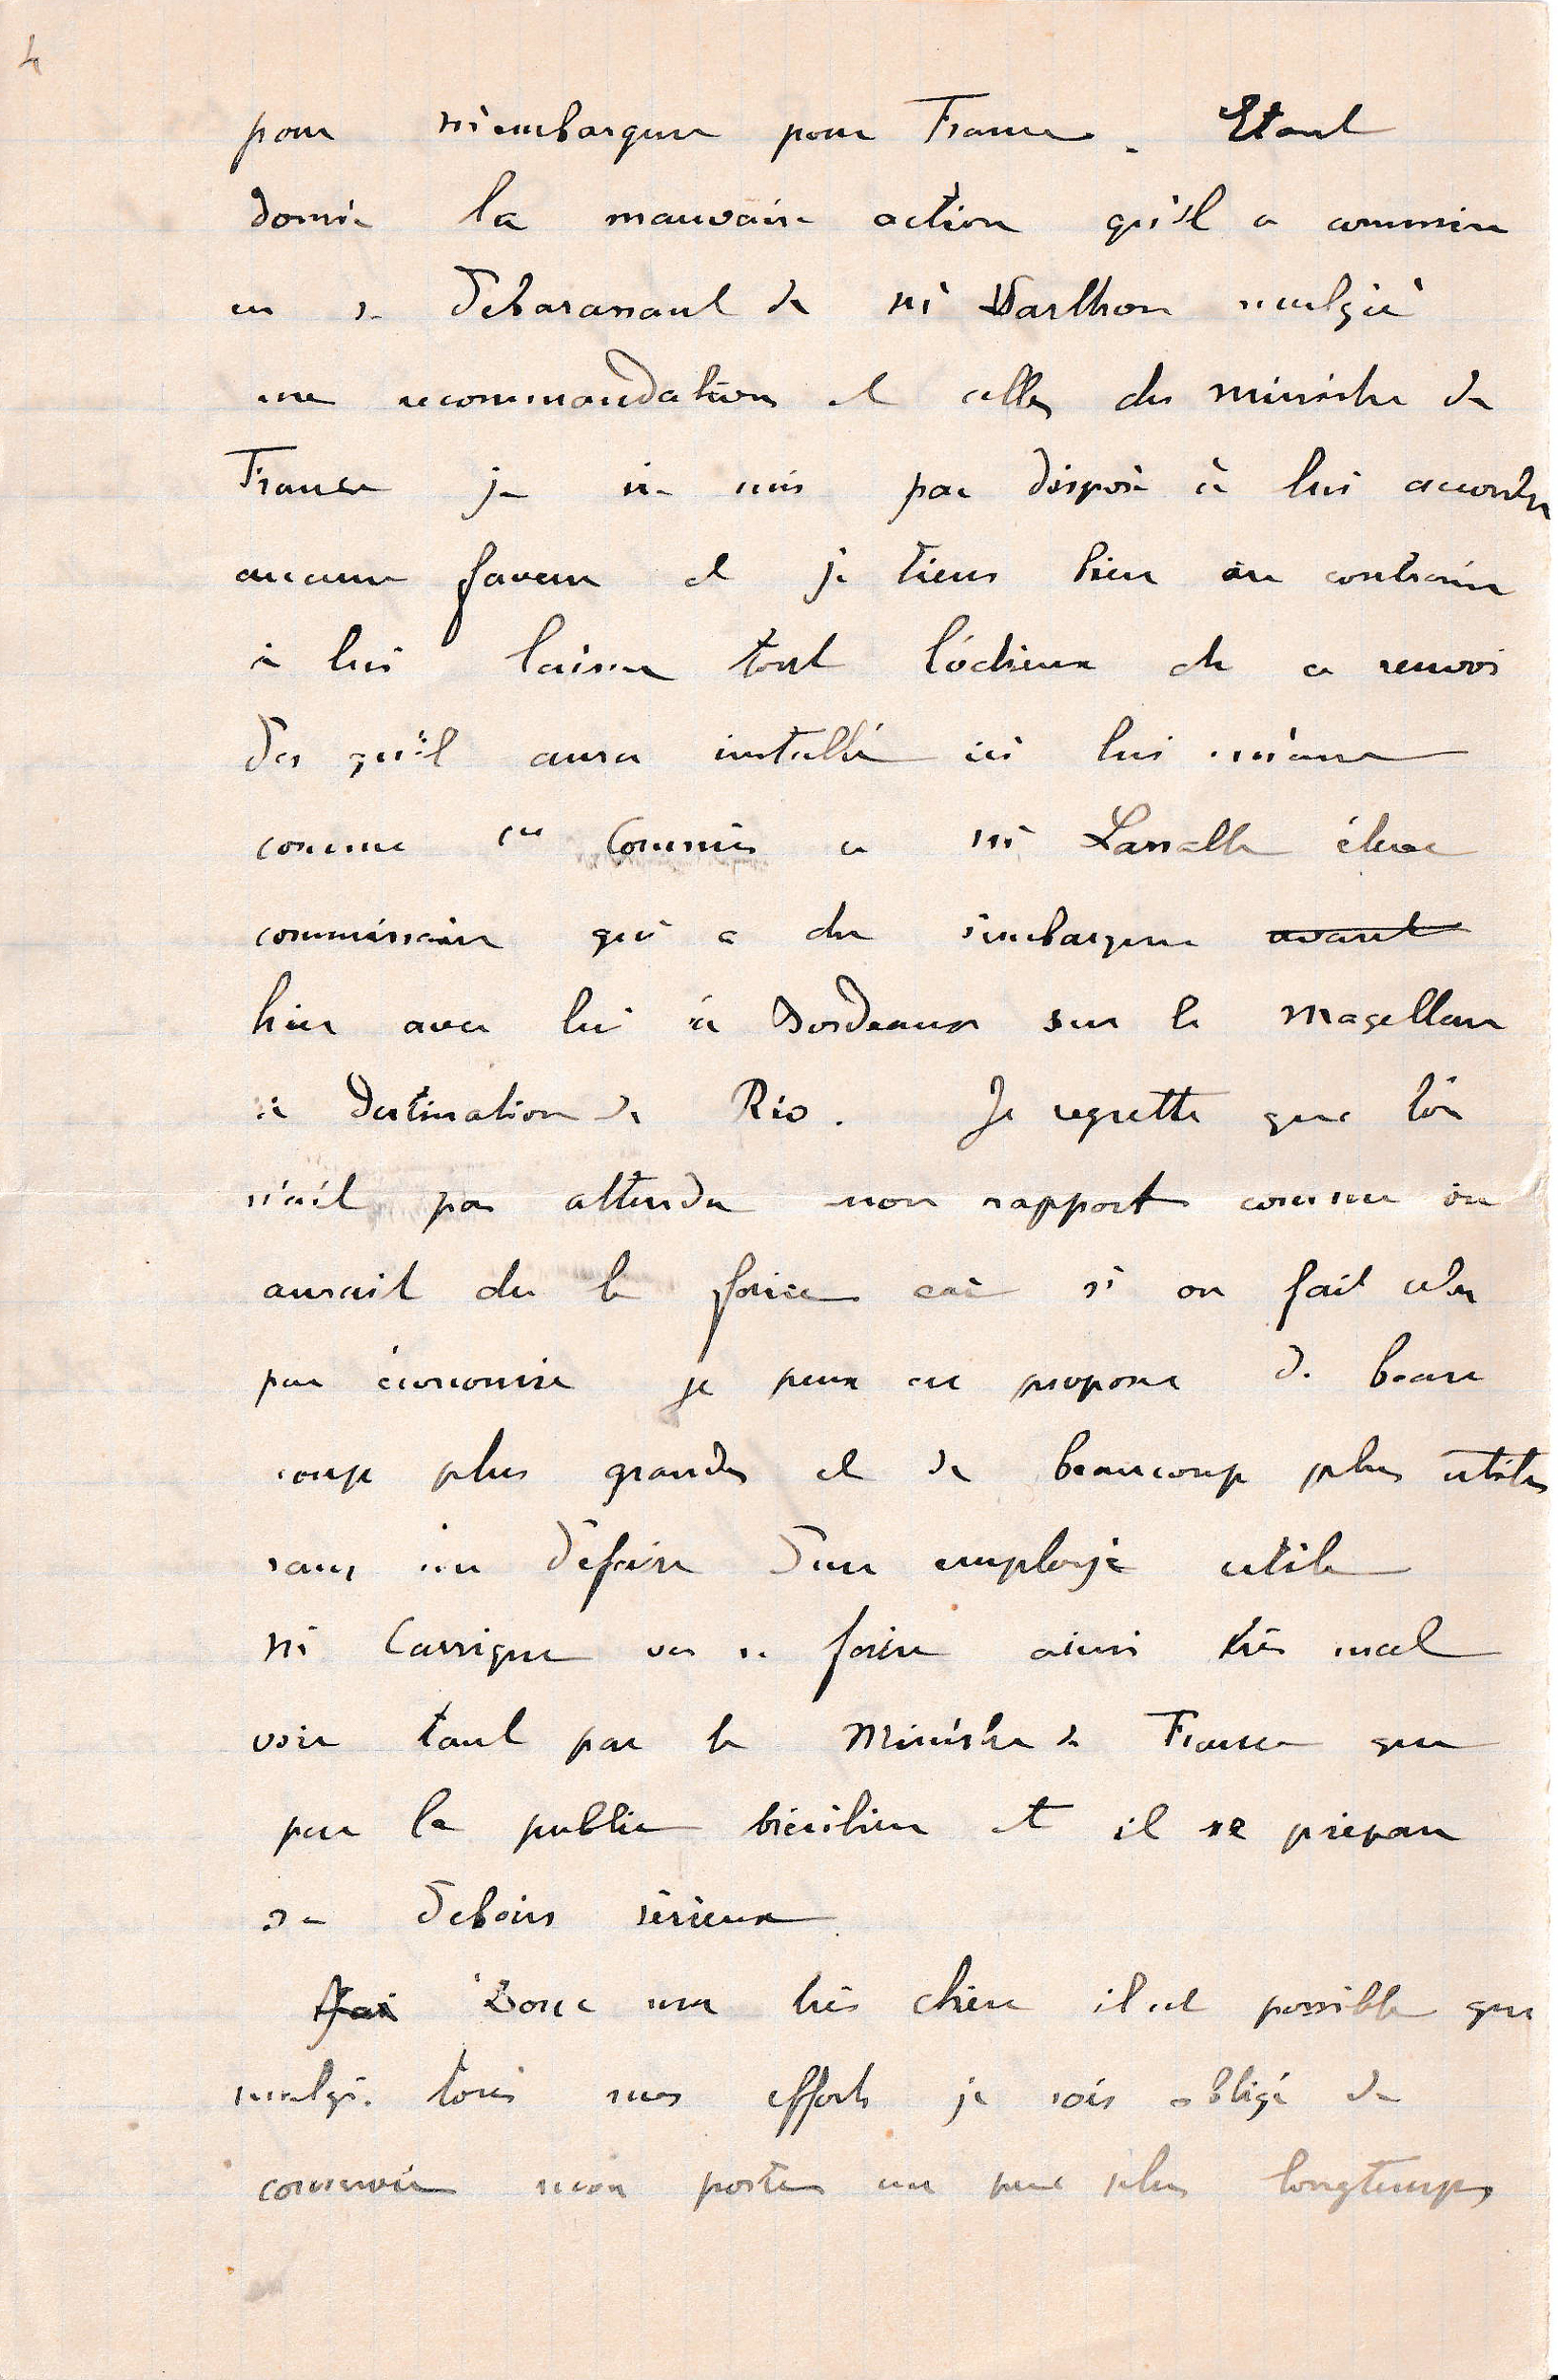 4
pour m'embarquer pour France. Etant
donné la mauvaise action qu'il a commise
en se débarassant de Mr Barthon malgré
mes recommandations et celles du ministre de
France je ne suis pas disposé à lui accorder
aucune faveur et je tiens bien au contraire
à lui laisser tout l'odieux de ce renvoi
dès qu'il aura installé ici lui même
comme 1er Commis ce Mr Lassalle élève
commissaire qui a du s'embarquer avant
hier avec lui à Bordeaux sur le Magellan
à destination de Rio. Je regrette que l'on
n'ait pas attendu mon rapport comme on
aurait du le faire car si on fait cela
par économie je peux en proposer de beau
coup plus grandes et de beaucoup plus utiles
sans se défaire d'un employé utile
Mr Carrigue va se faire ainsi très mal
voir tant par le Ministre de France que
par le public brésilien et il se prépare
de déboires sérieux
Donc ma très chère il est possible que
malgré tous mes efforts je sois obligé de
conserver mon poste un peu plus longtemps